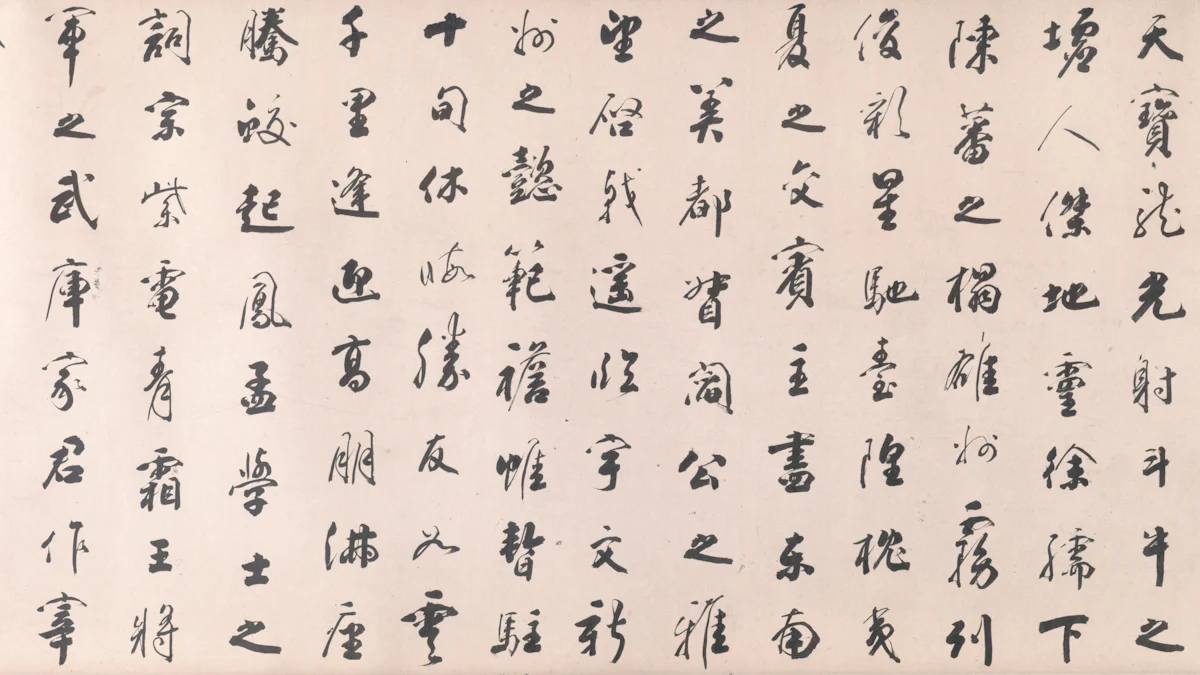 天寶龍光射斗牛之
墟人傑地靈徐孺下
陳蕃之榻雄州霧列
俊彩星馳臺隍枕夷
夏之交賓主盡東南
之美都督閻公之雅
望啓戟遙臨宇文新
州之懿範襜帷暫駐
十旬休暇勝友如雲
千里逢迎高朋滿座
騰蛟起鳳孟學士之
詞宗紫電青霜王將
軍之武庫家君作宰